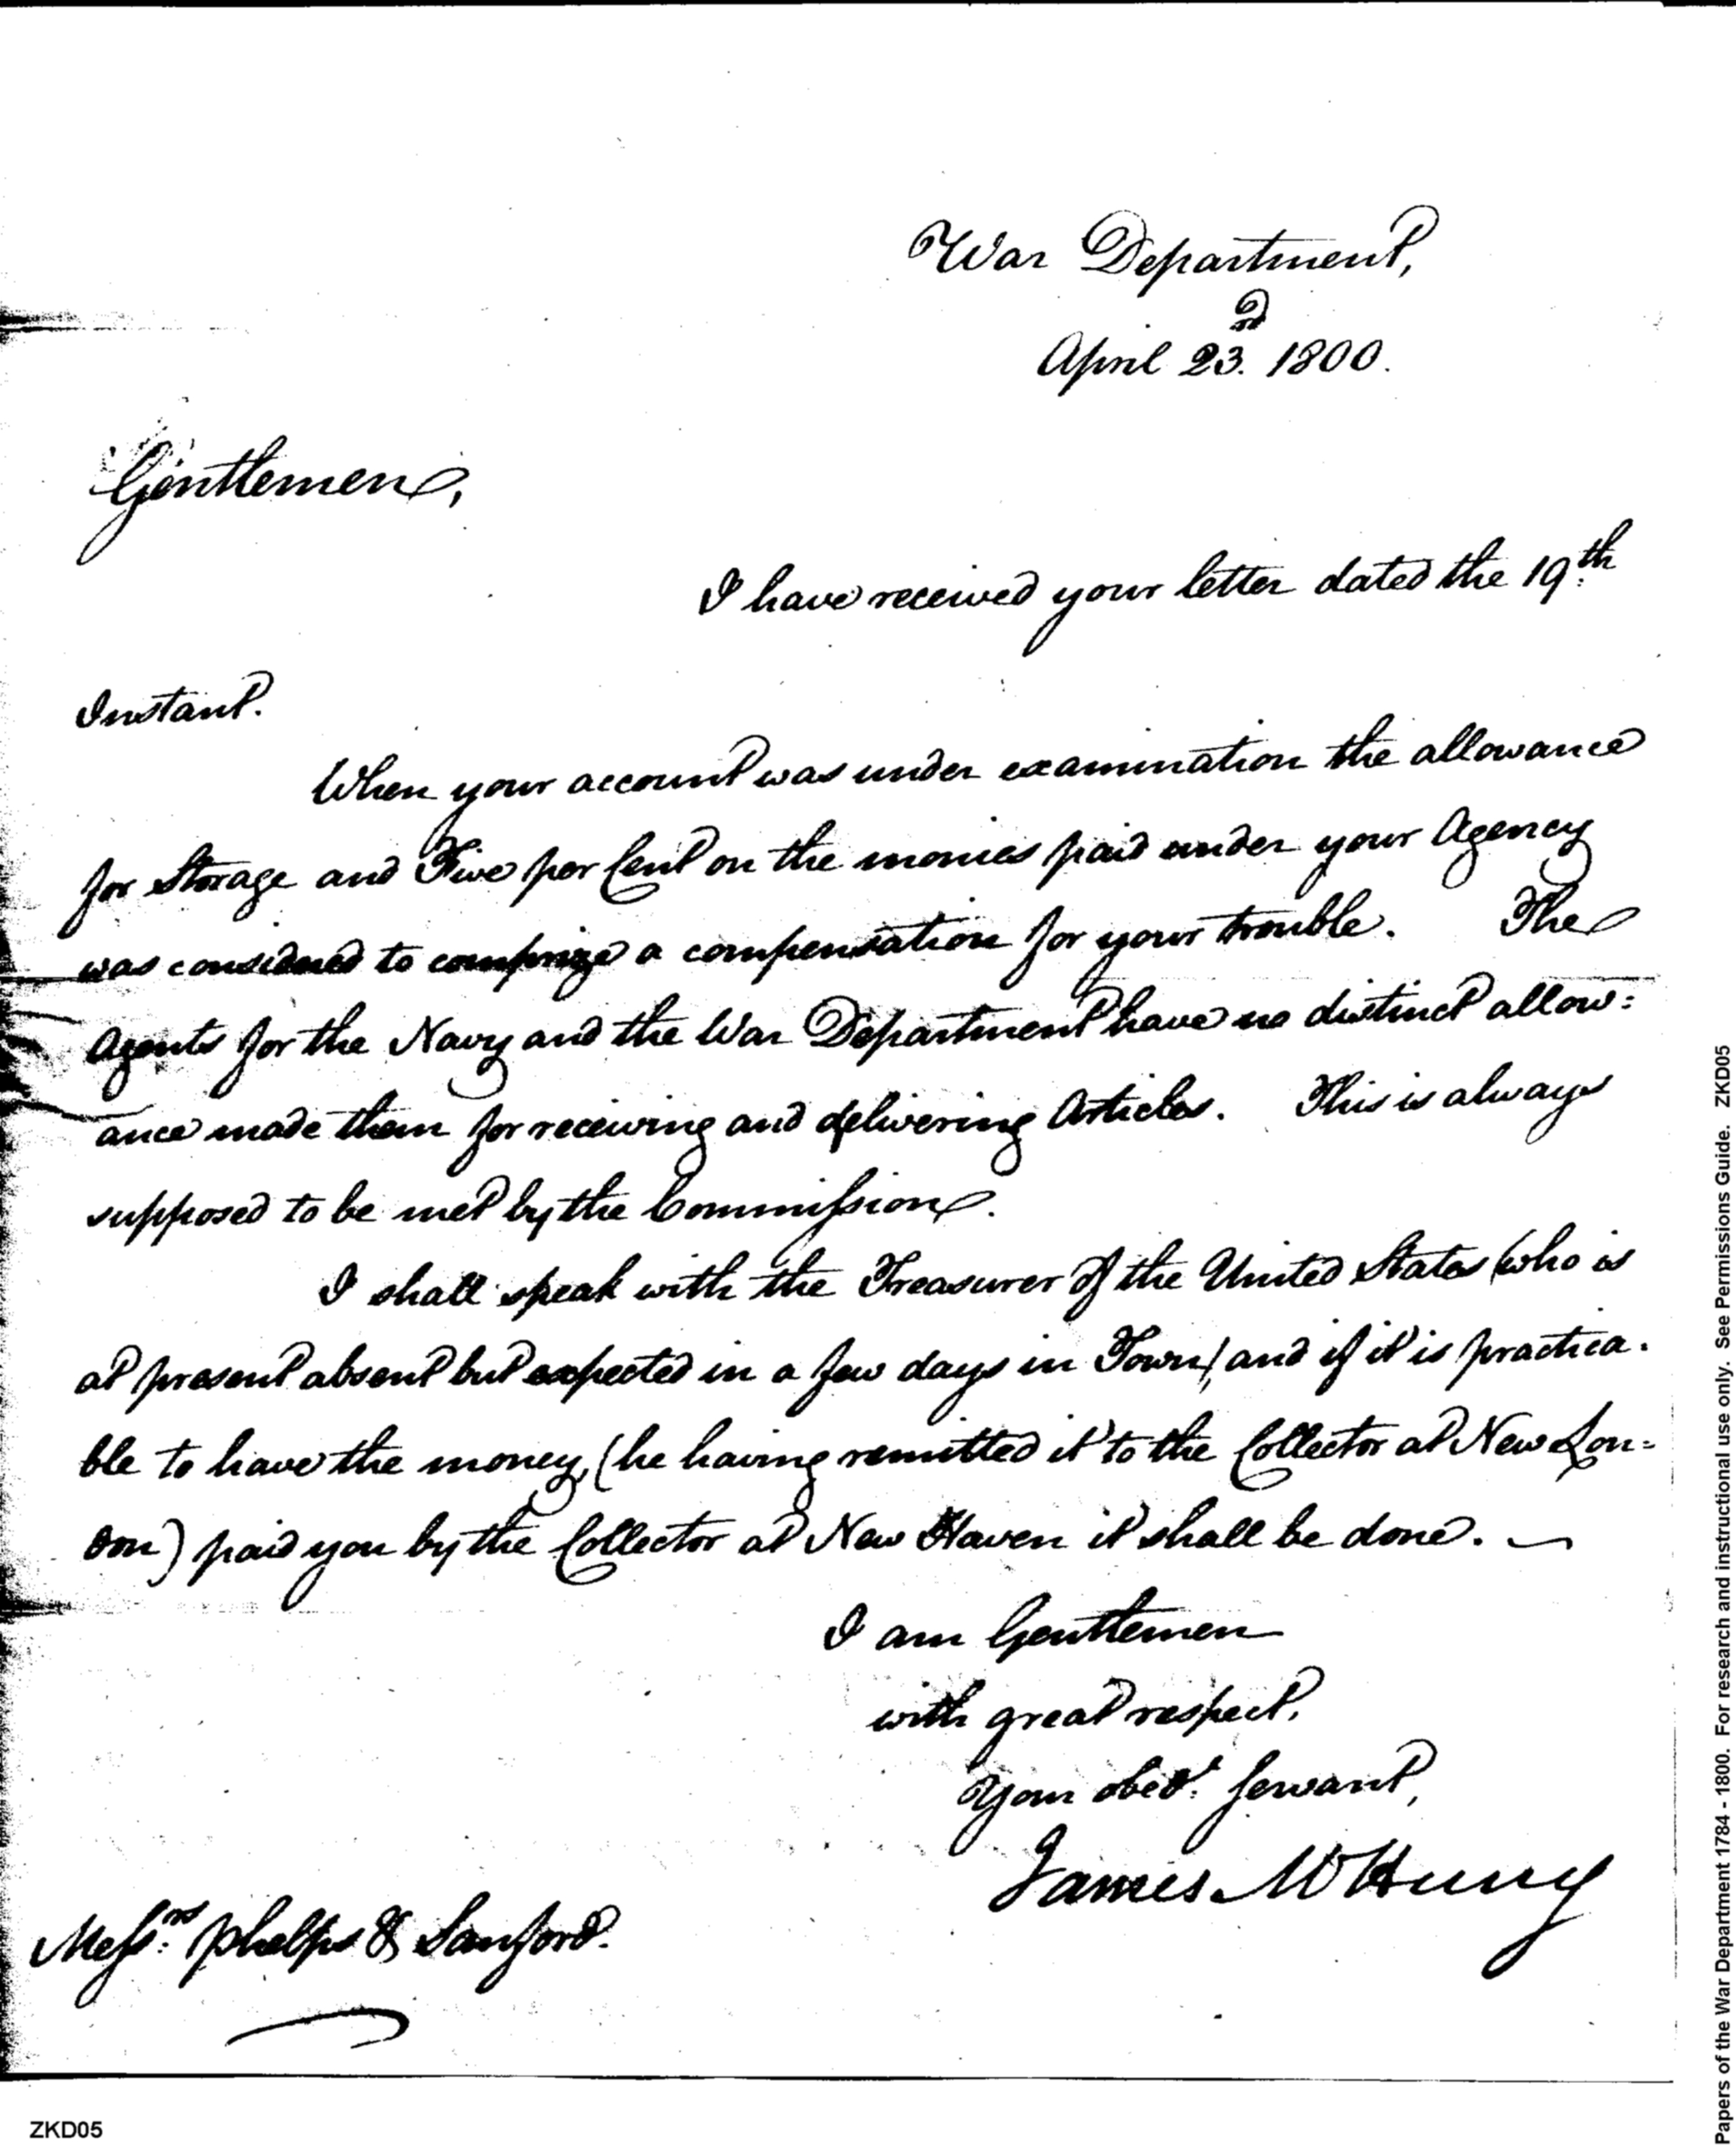 War Department,
April 23.d 1800.
Gentlemen,
I have received your letter dated the 19.th
Instant.
When your account was under examination the allowance
for Storage and Five per Cent on the monies paid under your Agency
was considered to comprize a compensation for your trouble. The
Agents for the Navy and the War Department have no distinct allow:
ance made them for receiving and delivering Articles. This is always
supposed to be met by the Commission.
I shall speak with the Treasurer of the United States (who is
at present absent but expected in a few days in Town), and if it is practica.
ble to have the money, (he having remitted it to the Collector at New Lon=
don) paid you by the Collector at New Haven it shall be done. —
I am Gentlemen
with great respect,
Your obed.t Servant,
James McHenry
Mess.rs Phelps & Sanford.
ZKD05
Papers of the War Department 1784 - 1800. For research and instructional use only. See Permissions Guide. ZKD05